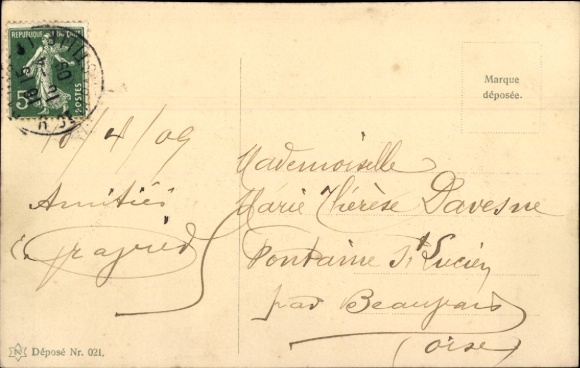 REPUBLIQUE FRANÇAISE
5
POSTES
Marque
déposée.
10/4/09
Mademoiselle
Amitiés
Marie Thérèse Davesne
Fontaine St Lucien
par Beauvais
(Oise)
Déposé Nr. 021.